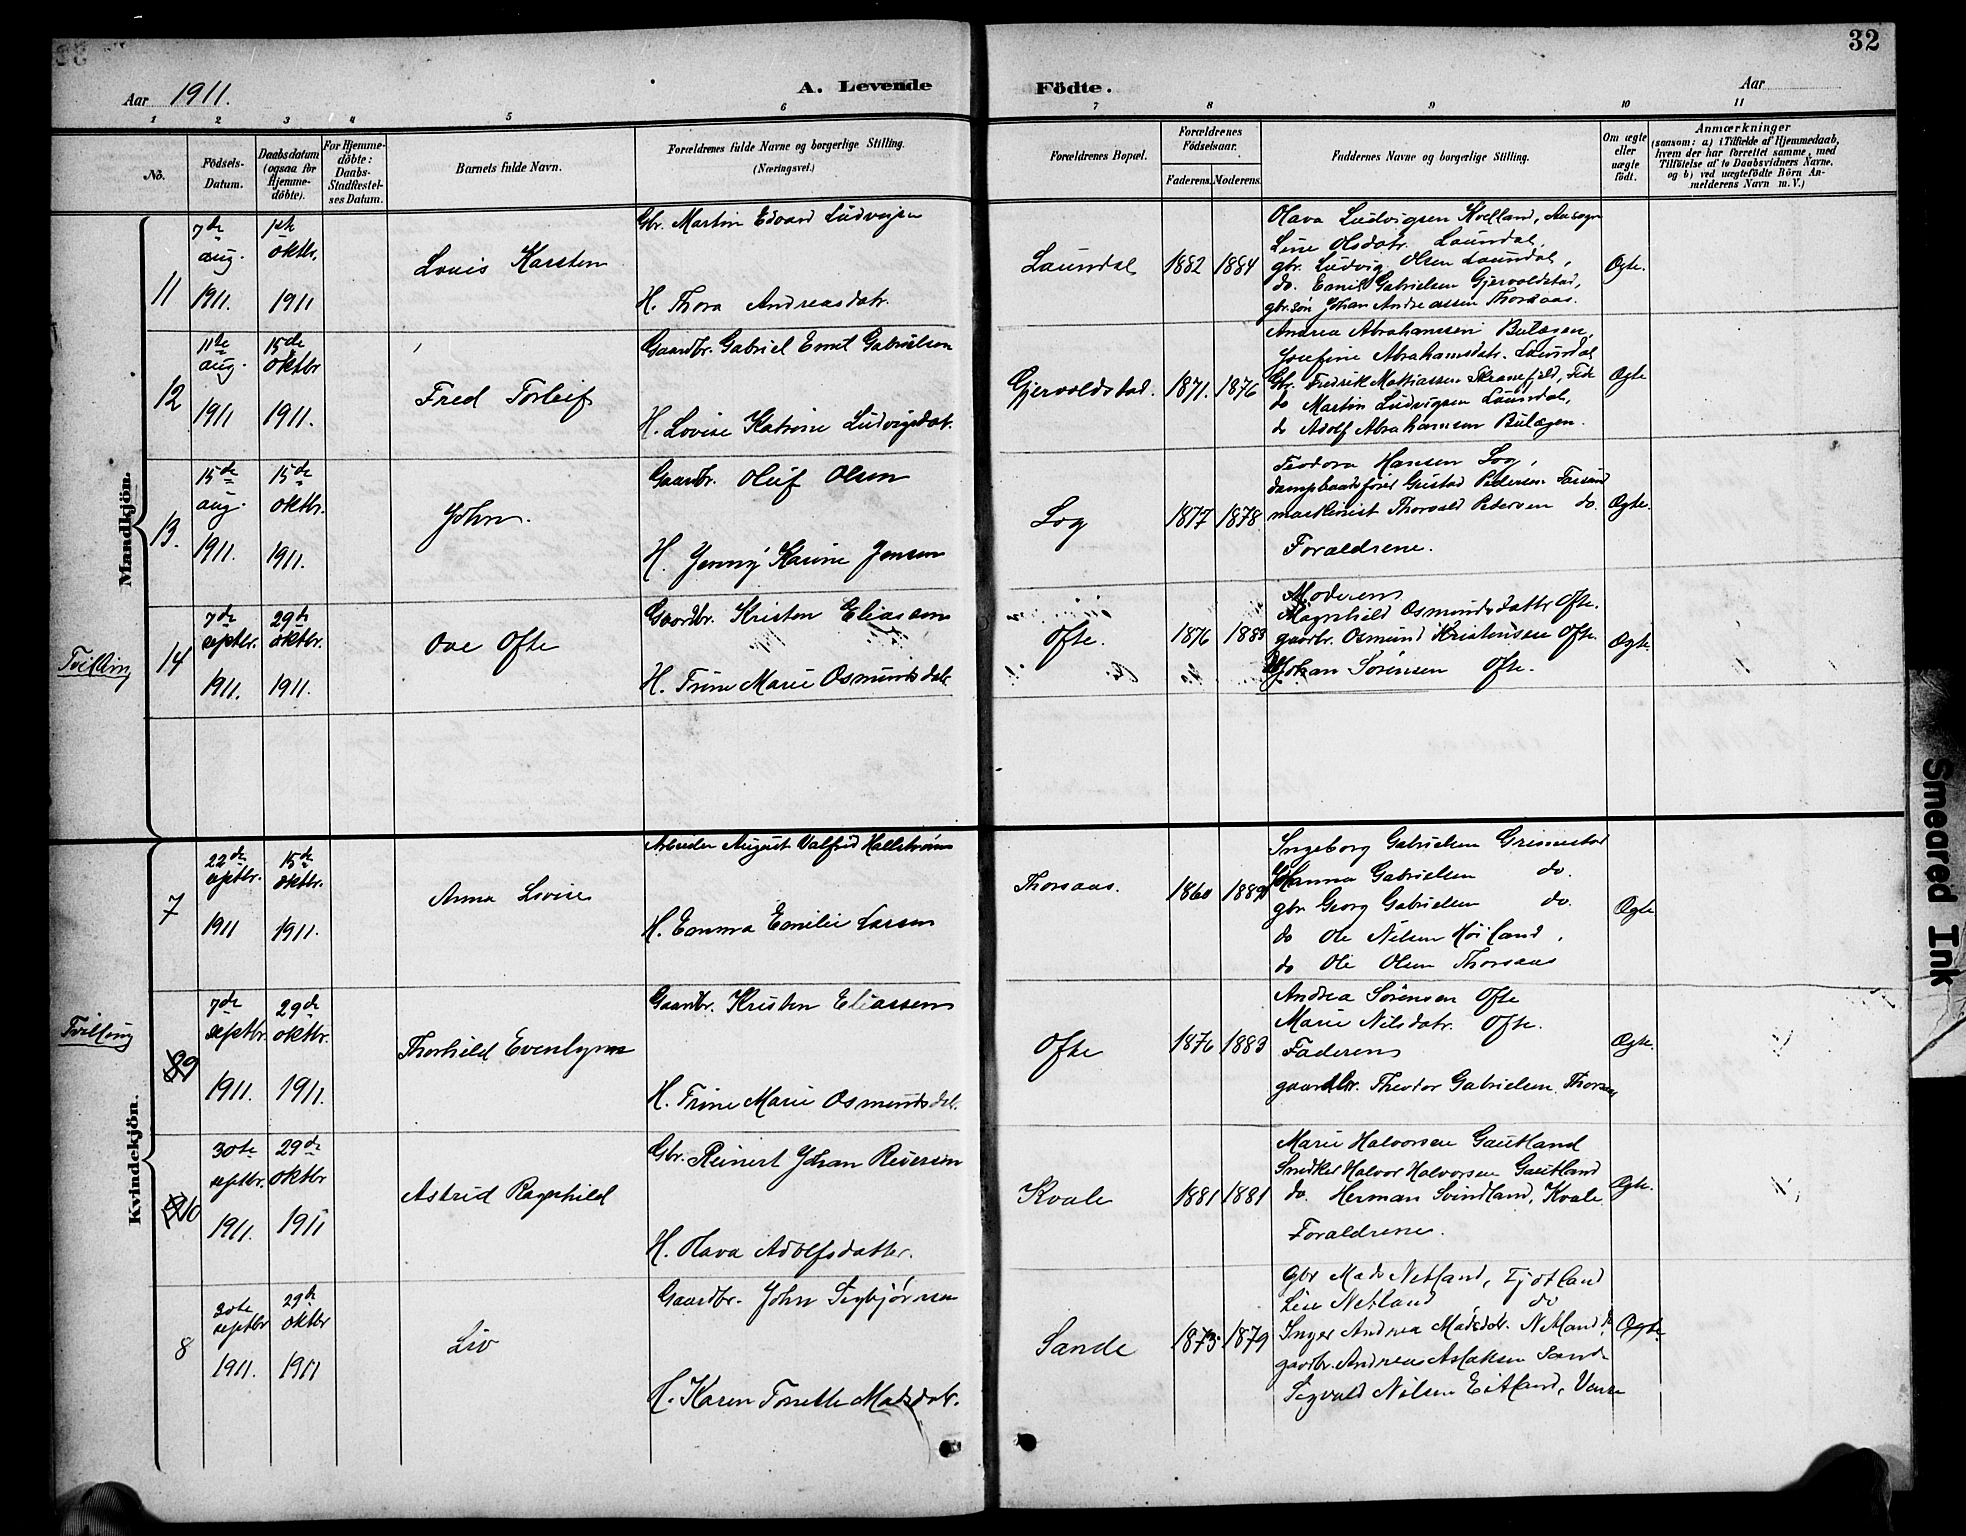 32
Aar 1911.
A. Levende Födte.
Aar
1 2 3 4 5 6 7 8 9 10 11
No.
Födsels-Datum.
Daabsdatum (ogsaa for Hjemme-döbte).
For Hjemme-döbte: Daabs-Stadfæstel-ses Datum.
Barnets fulde Navn.
Forældrenes fulde Navne og borgerlige Stilling. (Næringsvei.)
Forældrenes Bopæl.
Forældrenes Födselsaar.
Faderens. Moderens.
Faddernes Navne og borgerlige Stilling.
Om ægte eller uægte födt.
Anmærkninger
(saasom: a) i Tilfælde af Hjemmedaab, hvem der har forrettet samme, med Tilföielse af to Daabsvidners Navne. og b) ved uægtefödte Börn An-melderens Navn m. V.)
Mandkjön.
11
7de aug. 1911.
1ste oktbr. 1911
Louis Karsten
Gbr. Martin Edvard Ludvigsen
H. Thora Andreasdatr.
Laundal
1882 1884
Olava Ludvigsen Kvelland,
Line Olsdatr. Laundal,
gbr. Ludvig Olsen Laundal,
do. Emil Gabrielsen Gjervoldstad,
gbr.søn Johan Andreassen Thorsaas.
Ægte.
12
11te aug. 1911
15de oktbr 1911.
Fred Torleif
Gaardbr. Gabriel Emil Gabrielsen
H. Lovise Katrine Ludvigsdatr.
Gjervoldstad.
1871. 1876
Andrea Abrahamsen Bulægen,
Josefine Abrahamsdatr. Laundal
Gbr. Fredrik Mathiassen Skranefjeld, Fede
do Martin Ludvigsen Laundal,
do Adolf Abrahamsen Bulægen.
Ægte
13.
15de aug. 1911.
15de oktbr. 1911.
John.
Gaardbr. Oluf Olsen
H. Jenny Karine Jensen
Log
1877 1878
Teodora Hansen Log,
dampbaadsfører Gustav Pedersen Farsund
maskinist Thorvald Pedersen do.
Forældrene.
Ægte.
Tvilling
14
7de septbr. 1911.
29de oktbr. 1911.
Ove Ofte
Gaardbr. Kristen Eliassen
H. Trine Marie Osmundsdatr.
Ofte.
1876 1883
Moderen
Magnhild Osmundsdattr Ofte.
gaardbr. Osmund Kristensen Ofte.
Johan Sørensen Ofte.
Ægte
Kvindekjön.
7
22de septbr. 1911
15de oktbr. 1911.
Anna Lovise
Arbeider August Valfrid Hallstrøm
H. Emma Emilie Larsen
Thorsaas.
1860 1889
Ingeborg Gabrielsen Grimestad
Hanna Gabrielsen do.
gbr. Georg Gabrielsen do.
do Ole Nilsen Høiland,
do Ole Olsen Thorsaas
Ægte
Tvilling
9
7de septbr. 1911.
29de oktbr. 1911.
Thorhild Evenlynn
Gaardbr. Kristen Eliassen
H. Trine Marie Osmundsdatr.
Ofte
1876 1883
Andrea Sørensen Ofte
Marie Nilsdatr. Ofte.
Faderen
gaardbr. Theodor Gabrielsen Thorsaas
Ægte.
10
30te septbr. 1911.
29de oktbr 1911
Astrid Ragnhild
Gbr. Reinert Johan Reiersen
H. Olava Adolfsdatter.
Kvale
1881 1881
Marie Halvorsen Gautland
Snedker Halvor Halvorsen Gautland
do. Herman Svindland, Kvale
Forældrene.
Ægte.
8
30te septbr 1911.
29de oktbr 1911
Liv
Gaardbr. John Sigbjørnsen
H. Karen Tonette Madsdatr.
Sande
1873 1879
Gbr Mads Netland, Fjotland
Lise Netland do
Inger Andrea Madsdatr. Netland, do
gaardbr. Andreas Aslaksen Sande
Sigvald Nilsen Eitland, Vanse
Ægte.
Smeared Ink